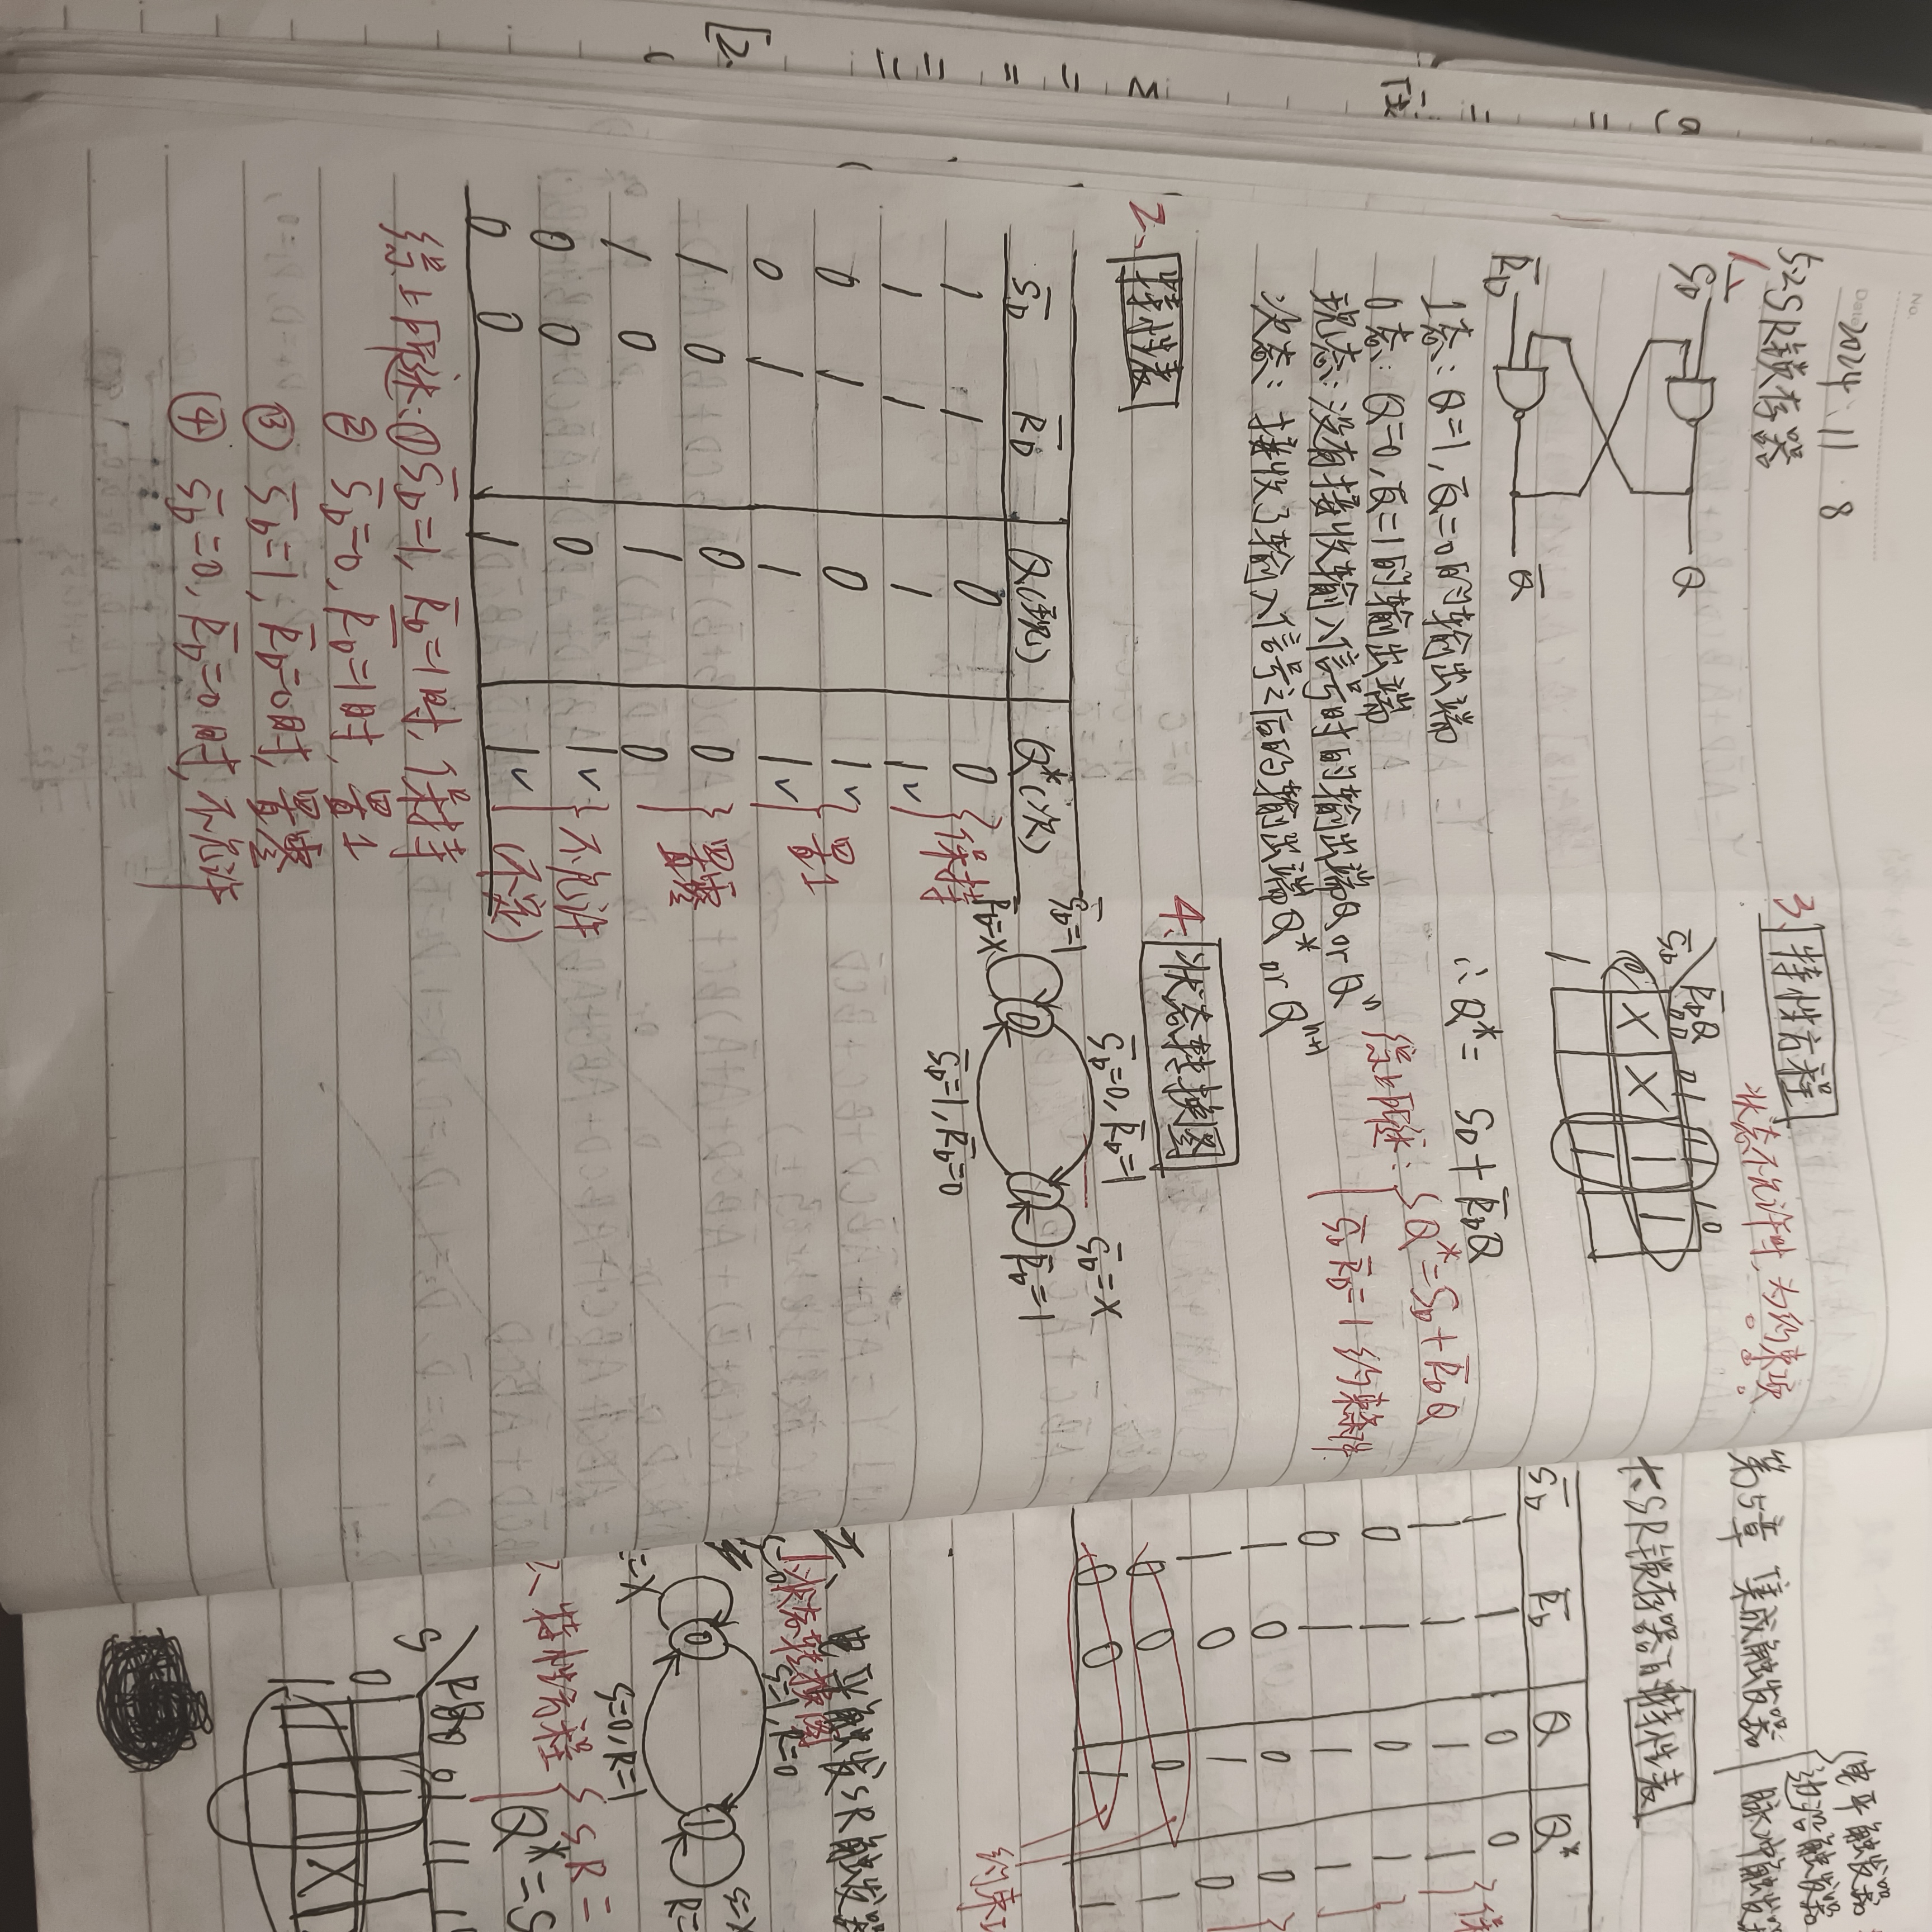 No.
Date 2024.11.8
5.2 SR锁存器
1、
S̅D Q
R̅D Q̅
1态：Q=1，Q̅=0的输出端
0态：Q=0，Q̅=1的输出端
现态：没有接收输入信号时的输出端Q or Qⁿ
次态：接收了输入信号之后的输出端Q* or Qⁿ⁺¹
2、特性表
S̅D R̅D Q(现) Q*(次)
1 1 0 0
1 1 1 1✓
保持
0 1 0 1✓
0 1 1 1✓
置1
1 0 0 0
1 0 1 0
置零
0 0 0 1✓
0 0 1 1✓
不允许
(不定)
综上所述：① S̅D=1，R̅D=1时，保持
② S̅D=0，R̅D=1时，置1
③ S̅D=1，R̅D=0时，置零
④ S̅D=0，R̅D=0时，不允许
3、特性方程
状态不允许时，为约束项
S̅D R̅DQ 00 01 11 10
0 X X 1 1
1 1
∴ Q* = SD + R̅DQ
综上所述：{ Q* = SD + R̅DQ
S̅D R̅D=1 约束条件
4、状态转换图
S̅D=0，R̅D=1
S̅D=1 S̅D=X
0 1
R̅D=X R̅D=1
S̅D=1，R̅D=0
第5章 集成触发器
电平触发器
边沿触发器
脉冲触发器
SR锁存器的特性表
S̅D R̅D Q Q*
1 1 0 0
1 1 1 1
0 1 0 1
0 1 1 1
1 0 0 0
1 0 1 0
0 0 0 1
0 0 1 1
约束
二、电平触发SR触发器
1、状态转换图
S=1，R=0
S=0 S=X
0 1
=X R=
S=0，R=1
2、特性方程 { SR=
Q*=S
S RQ 00 01 11 1
0 1
1 1 1 X